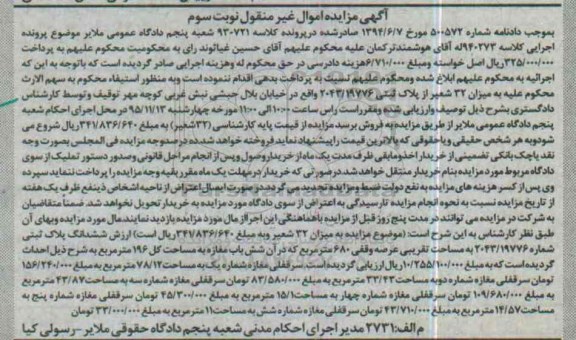 آگهی مزایده اموال غیر منقول نوبت سوم
بموجب دادنامه شماره ۵۰۰۵۷۲ مورخ ۱۳۹۴/۶/۷ صادر شده در پرونده کلاسه ۹۳۰۷۲۱ شعبه پنجم دادگاه عمومی ملایر موضوع پرونده
اجرایی کلاسه ۹۴۰۲۷۳ له آقای هوشمند ترکمان علیه محکوم علیهم آقای حسین غیاثوند رای به محکومیت محکوم علیهم به پرداخت
۳۲۵/۰۰۰/۰۰۰ ریال اصل خواسته ومبلغ ۶/۷۱۰/۰۰۰ هزینه دادرسی در حق محکوم له وهزینه اجرایی صادر گردیده است که باتوجه به این که
اجرائیه به محکوم علیهم ابلاغ شده ومحکوم علیهم نسبت به پرداخت بدهی اقدام ننموده است وبه منظور استیفاء محکوم به سهم الارث
محکوم علیه به میزان ۳۲ شعیر از پلاک ثبتی ۲۰۴۳/۱۹۷۷۶ واقع در خیابان بلال حبشی نبش غربی کوچه مهر توقیف و توسط کارشناس
دادگستری بشرح ذیل توصیف وارزیابی شده ومقرر است راس ساعت ۱۰:۰۰ الی ۱۱:۰۰ مورخه چهارشنبه ۹۵/۱۱/۱۳ در محل اجرای احکام شعبه
پنجم دادگاه عمومی ملایر از طریق مزایده به فروش برسد مزایده از قیمت پایه کارشناسی (۳۲شعیر) به مبلغ ۳۴۱/۸۳۶/۶۴۰ ریال شروع می
شود و به هر شخص حقیقی وحقوقی که بالاترین قیمت را پیشنهاد نماید فروخته خواهد شد ده درصد وجه مزایده فی المجلس بصورت وجه
نقد یا چک بانکی تضمینی از خریدار اخذ ومابقی ظرف مدت یک ماه از خریدار وصول وپس از انجام مراحل قانونی وصدور دستور تملیک از سوی
دادگاه مربوط مورد مزایده بنام خریدار منتقل خواهد شد در صورتی که خریدار در مهلت یک ماه مقرر بقیه وجه مزایده را پرداخت ننماید سپرده
وی پس از کسر هزینه های مزایده به نفع دولت ضبط و مزایده تجدید می گردد در صورت اعتراض از ناحیه اشخاص ذینفع ظرف یک هفته
از تاریخ مزایده نسبت به نحوه انجام مزایده تا رسیدگی به اعتراض از سوی دادگاه مورد مزایده به خریدار تحویل نخواهد شد. ضمنا متقاضیان
به شرکت در مزایده می توانند در مدت پنج روز قبل از مزایده با هماهنگی این اجرا از مال مورد مزایده بازدید نمایند. مال مورد مزایده وبهای آن
طبق نظر کارشناس به این شرح است: (موضوع مزایده به میزان ۳۲ شعیر وبه مبلغ ۳۴۱/۸۳۶/۶۴۰ ریال است) ارزش ششدانگ پلاک ثبتی
شماره ۲۰۴۳/۱۹۷۷۶ به مساحت تقریبی عرصه وقفی ۶۸۰ مترمربع که در آن شش باب مغازه به مساحت کل ۱۹۶ مترمربع به شرح ذیل احداث
گردیده است که به مبلغ ۱۰/۲۵۵/۱۰۰/۰۰۰ ریال ارزیابی گردیده است. سرقفلی مغازه شماره یک به مساحت ۷۸/۱۲ مترمربع به مبلغ ۱۵۶/۲۴۰/۰۰۰
تومان سرقفلی مغازه شماره دو به مساحت ۳۳/۴۳ مترمربع به مبلغ ۸۳/۵۸۰/۰۰۰ تومان سرقفلی مغازه شماره سه به مساحت ۴۳/۸۷ مترمربع
به مبلغ ۱۰۹/۶۸۰/۰۰۰ تومان سرقفلی مغازه شماره چهار به مساحت ۱۵/۱ مترمربع به مبلغ ۴۵/۳۰۰/۰۰۰ تومان سرقفلی مغازه شماره پنج به
مساحت ۱۴/۵۷ مترمربع به مبلغ ۴۳/۷۱۰/۰۰۰ تومان سرقفلی مغازه شماره شش به مساحت ۱۱ مترمربع به مبلغ ۳۳/۰۰۰/۰۰۰ تومان
م الف: ۲۷۳۱ مدیر اجرای احکام مدنی شعبه پنجم دادگاه حقوقی ملایر - رسولی کیا